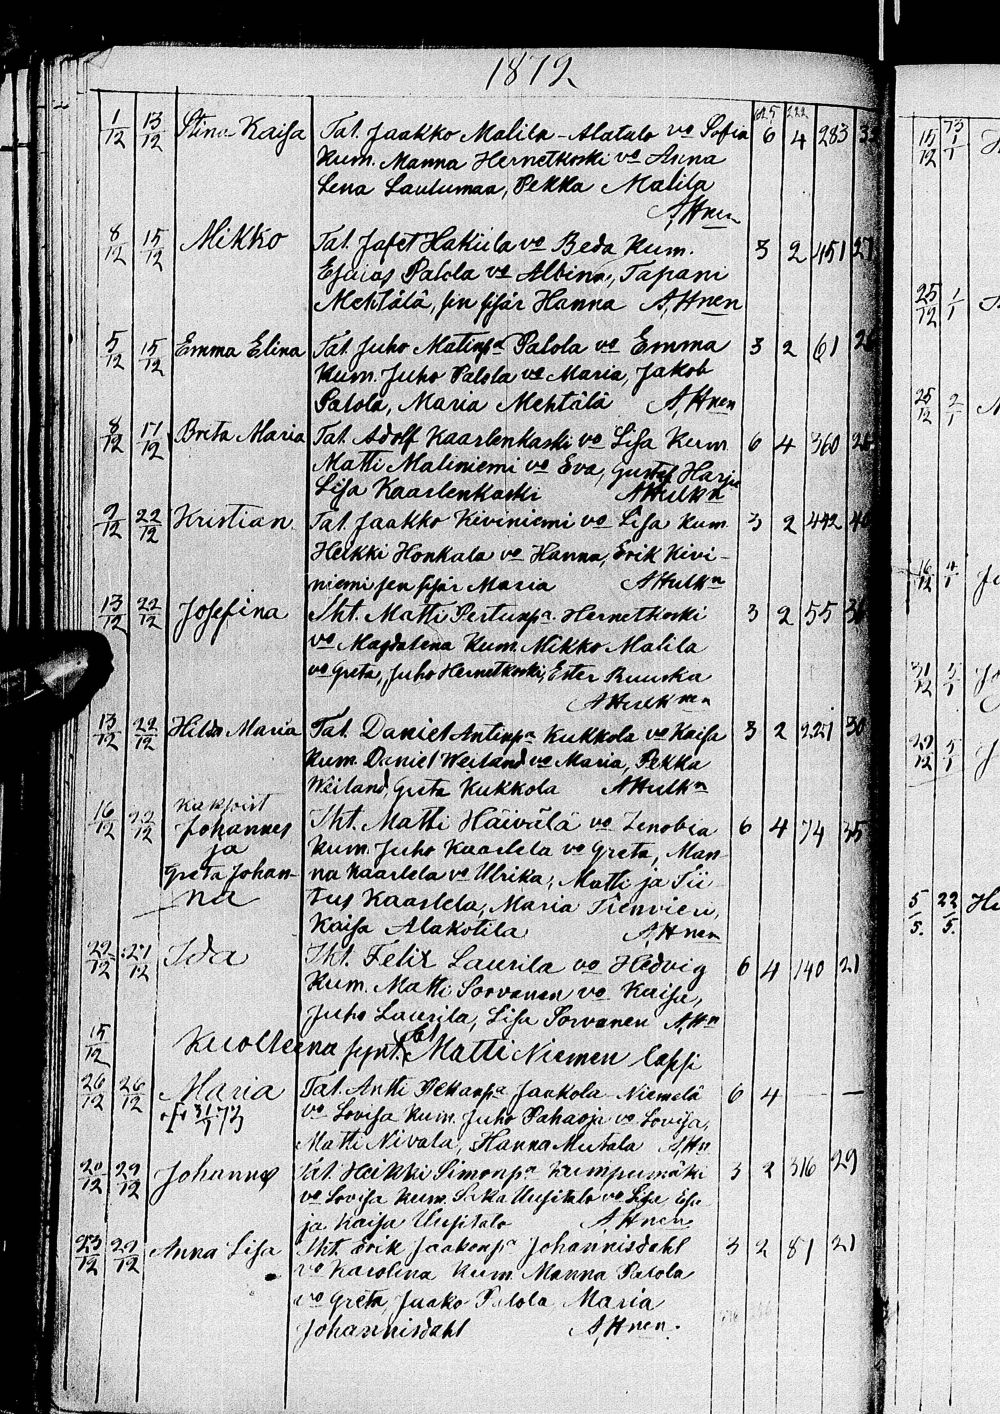 1872
625 222
1/12 13/12 Stina Kaisa Tal. Jaakko Malila-Alatalo vo Sofia 6 4 283
Kum. Manna Hernetkoski vo Anna
Lena Lautumaa, Pekka Malila
A, Hnen
8/12 15/12 Mikko Tal. Jafet Hakula vo Beda Kum. 3 2 451 27
Esaias Palola vo Albina, Tapani
Mehtälä, sen psär Hanna A, Hnen
5/12 15/12 Emma Elina Tal. Juho Matinpa Palola vo Emma 3 2 61
Kum. Juho Palola vo Maria, Jakob
Palola, Maria Mehtälä A, Hnen
8/12 17/12 Breta Maria Tal. Adolf Kaarlenkaski vo Lisa Kum 6 4 360
Matti Maliniemi vo Eva, Gustaf Harju
Lisa Kaarlenkaski AHulkn
9/12 22/12 Kristian Tal. Jaakko Kiviniemi vo Lisa Kum 3 2 442
Heikki Honkala vo Hanna, Erik Kivi-
niemi sen psär Maria AHulkn
13/12 22/12 Josefina Iht. Matti Pertunpa Hernetkoski 3 2 55
vo Magdalena Kum. Mikko Malila
vo Greta, Juho Hernetkoski, Ester Ruuska
AHulknen
13/12 22/12 Hilda Maria Tal. Daniel Antinpa Kukkola vo Kaisa 3 2 221 30
Kum. Daniel Weiland vo Maria, Pekka
Weiland, Greta Kukkola AHulkn
16/12 22/12 Kaksoist Johannes Iht. Matti Häivälä vo Zenobia 6 4 74 35
ja Kum. Juho Kaarlela vo Greta, Man-
Greta Johan- na Kaarlela vo Ulrika, Matti ja Tii-
na tus Kaarlela, Maria Tienvieri,
Kaisa Alakotila A, Hnen
22/12 27/12 Ida Iht. Felix Laurila vo Hedvig 6 4 140 21
Kum. Matti Sorvanen vo Kaisa,
Juho Laurila, Lisa Sorvanen A, Hn
15/12 Kuolleena synt. Matti Niemen lapsi
26/12 26/12 Maria Tal. Antti Pekanpa Jaakola Niemelä 6 4 — —
† 31/1 73 vo Lovisa Kum. Juho Pahaoja vo Lovisa,
Matti Nivala, Hanna A, Hn
20/12 29/12 Johannes Tal. Heikki Simonpa Kumpumäki 3 2 316 29
vo Lovisa Kum. Uusitalo vo Lisa
ja Kaisa Uusitalo A, Hnen
23/12 29/12 Anna Lisa Iht. Erik Jaakonpa Johannisdahl 3 2 81 21
vo Karolina Kum. Manna Palola
vo Greta, Jaako Palola Maria
Johannisdahl A, Hnen.
15/12 73 1/1
25/12 1/1
25/12 2/1
16/12 4/1
31/12 5/1
29/12 5/1
5/5. 22/5.